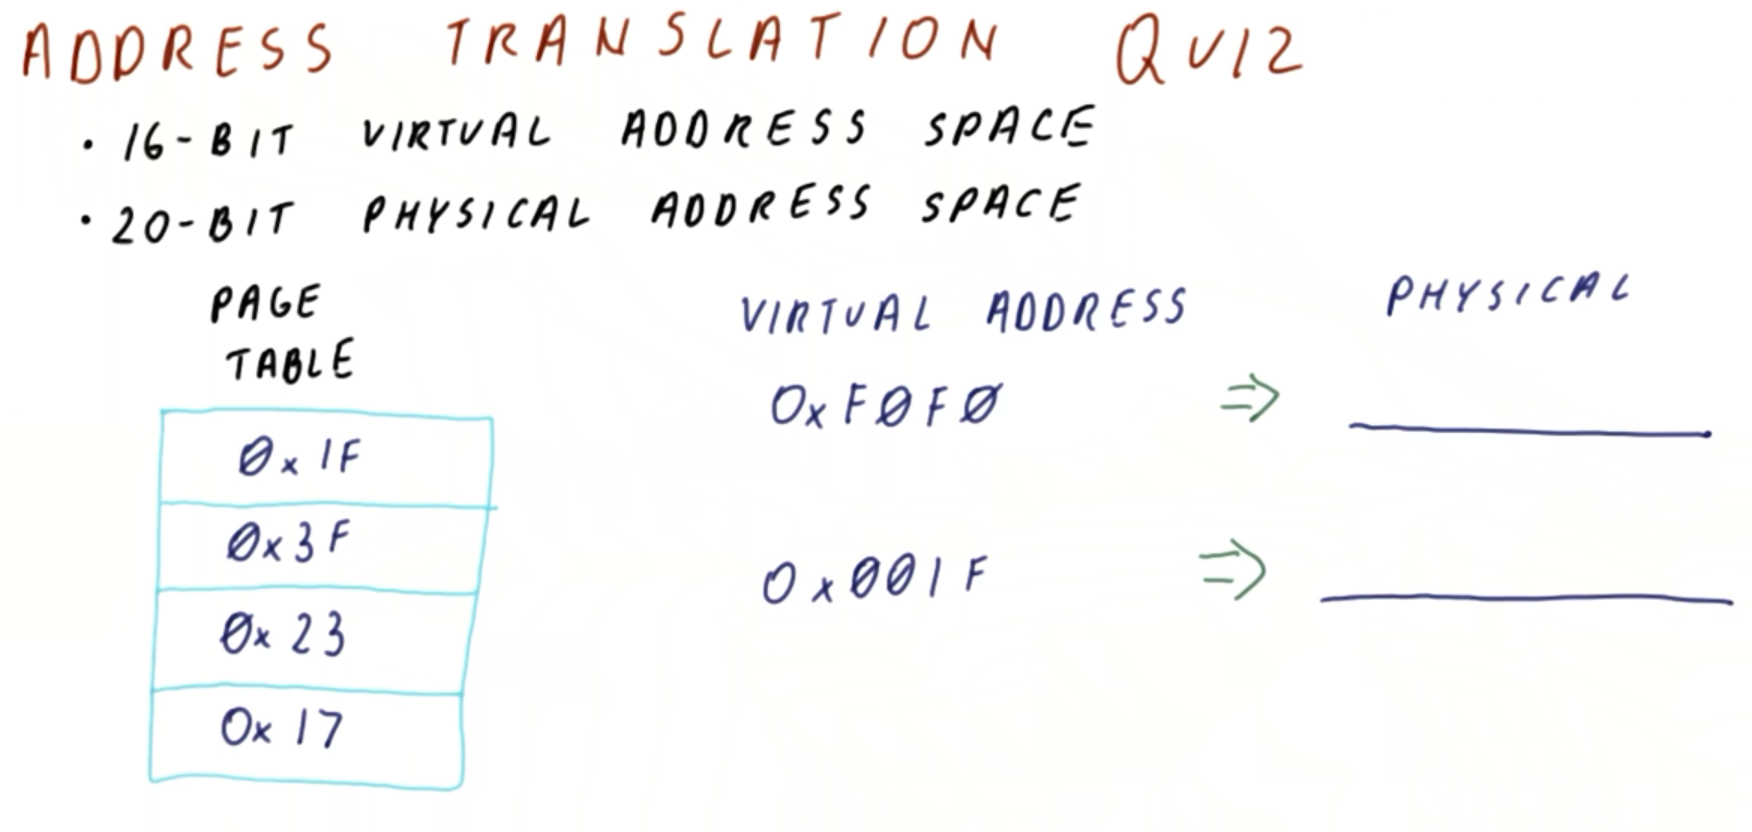 ADDRESS TRANSLATION QUIZ
• 16-BIT VIRTUAL ADDRESS SPACE
• 20-BIT PHYSICAL ADDRESS SPACE
PAGE
TABLE
0x1F
0x3F
0x23
0x17
VIRTUAL ADDRESS PHYSICAL
0xF0F0 ⇒
0x001F ⇒